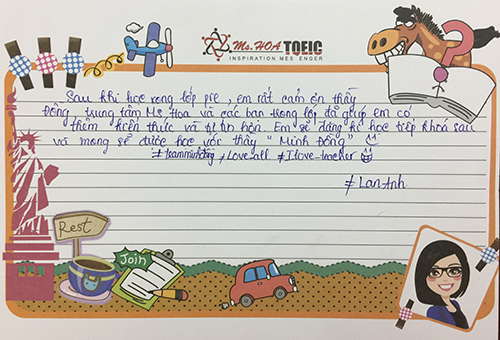 Ms. HOA TOEIC
INSPIRATION MESSENGER
Sau khi học xong lớp pre, em rất cảm ơn thầy
Đồng, trung tâm Ms Hoa và các bạn trong lớp đã giúp em có
thêm kiến thức và tự tin hơn. Em sẽ đăng kí học tiếp khoá sau
và mong sẽ được học với thầy "Minh Đồng"
#teamminhđồng, Love_all #I love_teacher
#Lan Anh
Rest
Join